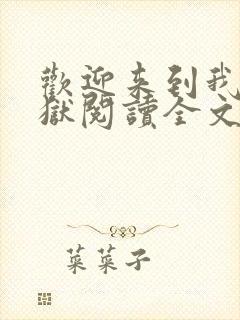 歡迎來到我
獄閱讀全文
菜菜子